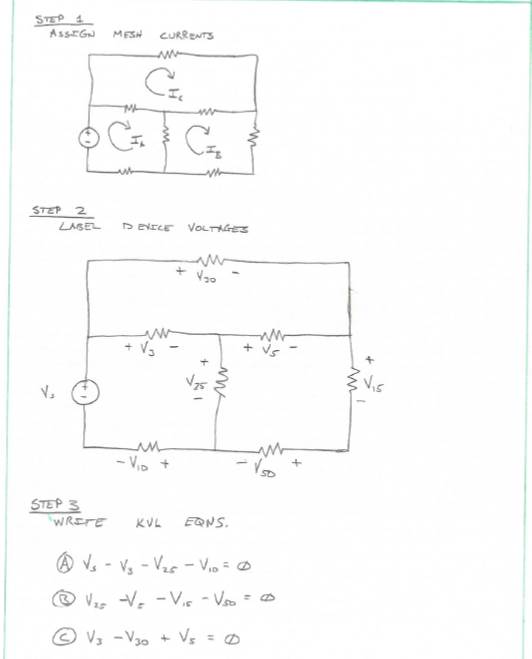 STEP 1
ASSIGN MESH CURRENTS
I_C
I_A I_B
STEP 2
LABEL DEVICE VOLTAGES
+ V30 -
+ V3 - + V5 -
Vs + - + V25 - + V15 -
- V10 + - V50 +
STEP 3
WRITE KVL EQNS.
Ⓐ Vs - V3 - V25 - V10 = ∅
Ⓑ V25 - V5 - V15 - V50 = ∅
Ⓒ V3 - V30 + V5 = ∅